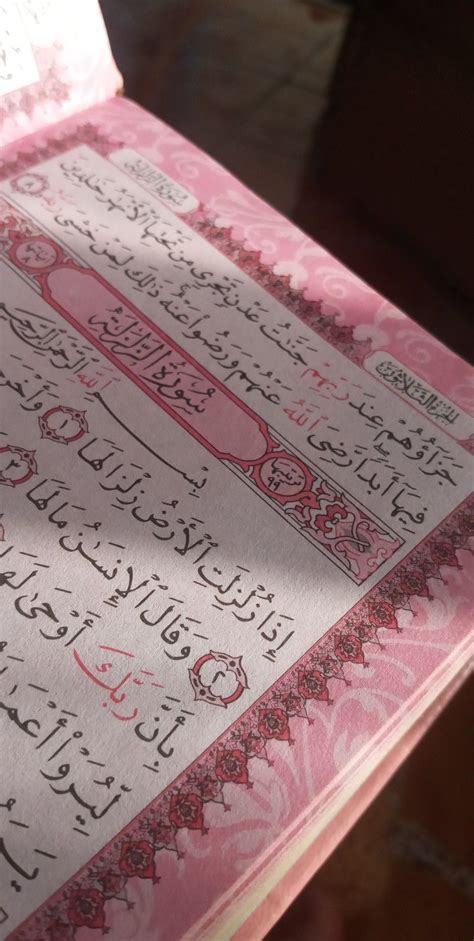 الجزء الثلاثون
سورة الزلزلة
جَزَآؤُهُمْ عِندَ رَبِّهِمْ جَنَّٰتُ عَدْنٍ تَجْرِى مِن تَحْتِهَا ٱلْأَنْهَٰرُ خَٰلِدِينَ
فِيهَآ أَبَدًا رَّضِىَ ٱللَّهُ عَنْهُمْ وَرَضُوا۟ عَنْهُ ذَٰلِكَ لِمَنْ خَشِىَ رَبَّهُۥ ٨
ترتيبها ٩٩ سُورَةُ الزَّلْزَلَةِ آياتها
بِسْمِ ٱللَّهِ ٱلرَّحْمَٰنِ ٱلرَّحِيمِ
إِذَا زُلْزِلَتِ ٱلْأَرْضُ زِلْزَالَهَا ١ وَأَخْرَ
٢ وَقَالَ ٱلْإِنسَٰنُ مَا لَهَا ٣
بِأَنَّ رَبَّكَ أَوْحَىٰ لَهَا
لِّيُرَوْا۟ أَعْمَٰ